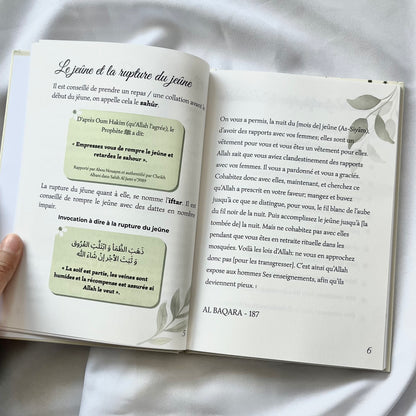 Le jeûne et la rupture du jeûne
Il est conseillé de prendre un repas / une collation avant le
début du jeûne, on appelle cela le sahûr.
D'après Oum Hakim (qu'Allah l'agrée), le
Prophète ﷺ a dit
« Empressez vous de rompre le jeûne et
retardez le sahour ».
La rupture du jeûne quant à elle, se nomme l'iftar. Il est
conseillé de rompre le jeûne avec des dattes en nombre
impair.
Invocation à dire à la rupture du jeûne
ذَهَبَ الظَّمَأُ وَ ابْتَلَّتِ العُرُوقُ
وَ ثَبَتَ الأَجْرُ إِنْ شَاءَ اللَّه
« La soif est partie, les veines sont
humides et la récompense est assurée si
Allah le veut ».
5
On vous a permis, la nuit du [mois de] jeûne (As-Siyâm),
d'avoir des rapports avec vos femmes; elles sont un
vêtement pour vous et vous êtes un vêtement pour elles.
Allah sait que vous aviez clandestinement des rapports
avec vos femmes. Il vous a pardonné et vous a graciés.
Cohabitez donc avec elles, maintenant, et cherchez ce
qu'Allah a prescrit en votre faveur; mangez et buvez
jusqu'à ce que se distingue, pour vous, le fil blanc de l'aube
du fil noir de la nuit. Puis accomplissez le jeûne jusqu'à [la
tombée de] la nuit. Mais ne cohabitez pas avec elles
pendant que vous êtes en retraite rituelle dans les
mosquées. Voilà les lois d'Allah: ne vous en approchez
donc pas [pour les transgresser]. C'est ainsi qu'Allah
expose aux hommes Ses enseignements, afin qu'ils
deviennent pieux.
AL BAQARA - 187
6